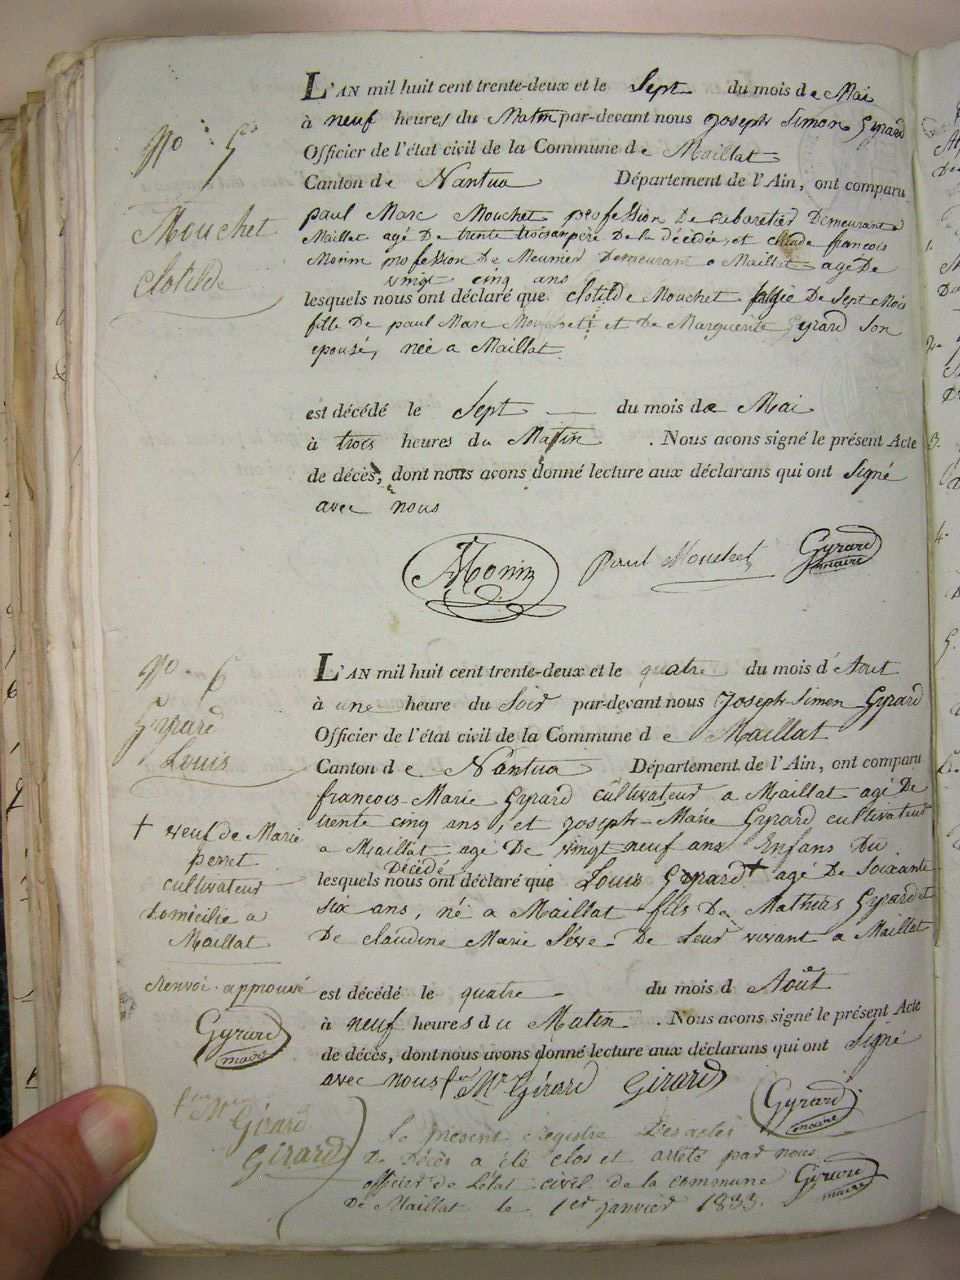 No. 5
Mouchet
Clotilde
L'AN mil huit cent trente-deux et le Sept du mois de Mai
à neuf heures du Matin par-devant nous Joseph Simon Gyrard
Officier de l'état civil de la Commune de Maillat
Canton de Nantua Département de l'Ain, ont comparu
paul Marc Mouchet profession De cabaretier Demeurant a
Maillat agé De trente trois ans père De la décédée, et claude françois
Monin profession De Meunier Demeurant a Maillat agé De
vingt cinq ans
lesquels nous ont déclaré que clotilde Mouchet agée De Sept Mois
fille De paul Marc Mouchet et De Marguerite Gyrard Son
epouse, née a Maillat.
est décédé le Sept du mois de Mai
à trois heures du Matin . Nous avons signé le présent Acte
de décès, dont nous avons donné lecture aux déclarans qui ont Signé
avec nous
Monin Paul Mouchet Gyrard
maire
No. 6
Gyrard
Louis
L'AN mil huit cent trente-deux et le quatre du mois d'Aout
à une heure du Soir par-devant nous Joseph-Simon Gyrard
Officier de l'état civil de la Commune de Maillat
Canton de Nantua Département de l'Ain, ont comparu
francois-Marie Gyrard cultivateur a Maillat agé De
trente cinq ans, et Joseph-Marie Gyrard cultivateur
a Maillat agé De vingt neuf ans Enfans Du
Décédé
lesquels nous ont déclaré que Louis Gyrard + agé de Soixante
six ans, né a Maillat fils De Mathias Gyrard et
De claudine Marie Sève De Leur vivant a Maillat
+ veuf de Marie
perret
cultivateur
domicilié a
Maillat
Renvoi approuvé
Gyrard
maire
est décédé le quatre du mois d Août
à neuf heures du Matin . Nous avons signé le présent Acte
de décès, dont nous avons donné lecture aux déclarans qui ont Signé
avec nous f.ois M.ie Girard Girard Gyrard
maire
Girard
Girard
Le present Registre Des actes
De Décès a été clos et arrêté par nous
officier de l'état civil de la commune
De Maillat le 1er janvier 1833.
Girard
maire